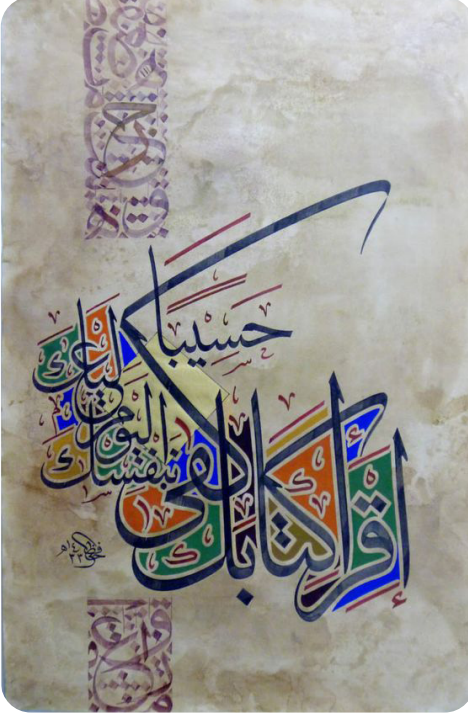 إقرأ كتابك كفى بنفسك اليوم عليك حسيبا